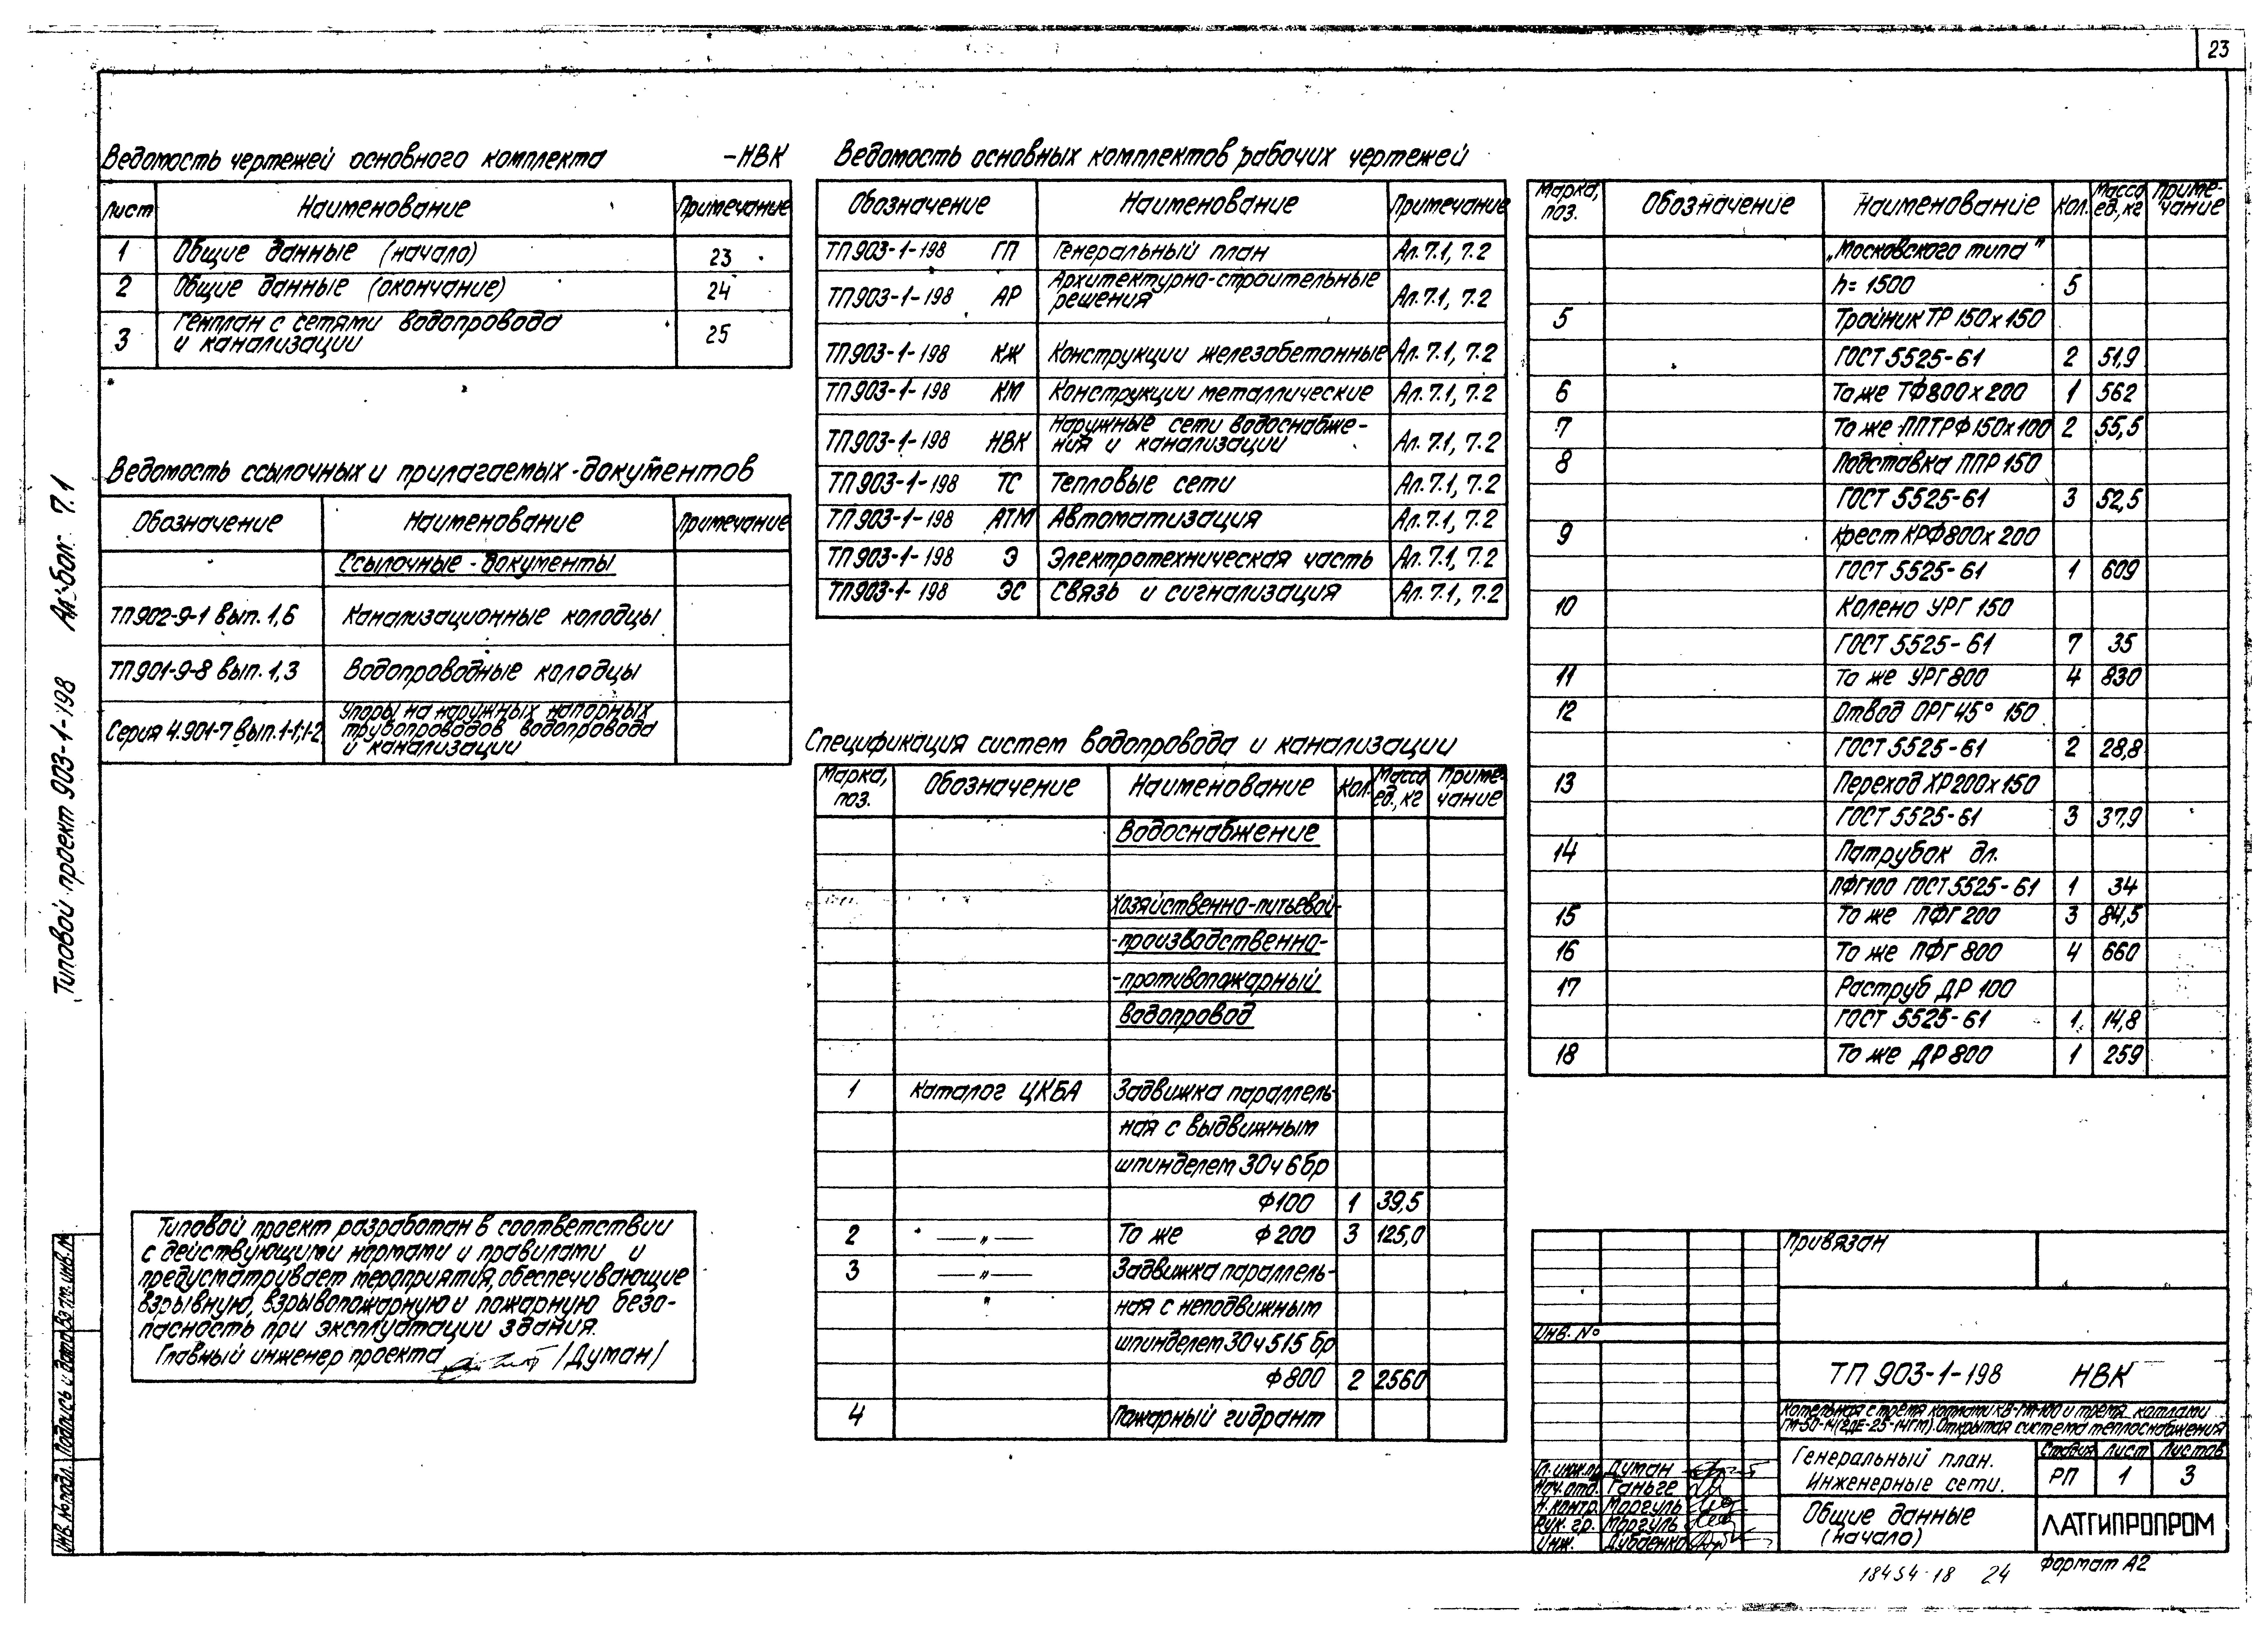 23
Ведомость чертежей основного комплекта -НВК
Лист Наименование Примечание
1 Общие данные (начало) 23
2 Общие данные (окончание) 24
3 Генплан с сетями водопровода
и канализации 25
Ведомость ссылочных и прилагаемых документов
Обозначение Наименование Примечание
Ссылочные документы
ТП902-9-1 вып. 1,6 Канализационные колодцы
ТП901-9-8 вып. 1,3 Водопроводные колодцы
Серия 4.901-7 вып.1-1;1-2 Упоры на наружных напорных
трубопроводов водопровода
и канализации
Типовой проект 903-1-198 Альбом 7.1
Типовой проект разработан в соответствии
с действующими нормами и правилами и
предусматривает мероприятия, обеспечивающие
взрывную, взрывопожарную и пожарную безо-
пасность при эксплуатации здания.
Главный инженер проекта /Думан/
Инв. № подл. Подпись и дата Взам. инв. №
Ведомость основных комплектов рабочих чертежей
Обозначение Наименование Примечание
ТП903-1-198 ГП Генеральный план Ал. 7.1, 7.2
ТП903-1-198 АР Архитектурно-строительные
решения Ал. 7.1, 7.2
ТП903-1-198 КЖ Конструкции железобетонные Ал. 7.1, 7.2
ТП903-1-198 КМ Конструкции металлические Ал. 7.1, 7.2
ТП903-1-198 НВК Наружные сети водоснабже-
ния и канализации Ал. 7.1, 7.2
ТП903-1-198 ТС Тепловые сети Ал. 7.1, 7.2
ТП903-1-198 АТМ Автоматизация Ал. 7.1, 7.2
ТП903-1-198 Э Электротехническая часть Ал. 7.1, 7.2
ТП903-1-198 ЭС Связь и сигнализация Ал. 7.1, 7.2
Спецификация систем водопровода и канализации
Марка, поз. Обозначение Наименование Кол. Масса ед., кг Приме-чание
Водоснабжение
Хозяйственно-питьевой-
-производственно-
-противопожарный
водопровод
1 Каталог ЦКБА Задвижка параллель-
ная с выдвижным
шпинделем 30ч6бр
Ф100 1 39,5
2 —„— То же Ф200 3 125,0
3 —„— Задвижка параллель-
„ ная с неподвижным
шпинделем 30ч515бр
Ф800 2 2560
4 Пожарный гидрант
Марка, поз. Обозначение Наименование Кол. Масса ед., кг Приме-чание
„Московского типа"
h=1500 5
5 Тройник ТР 150х150
ГОСТ 5525-61 2 51,9
6 То же ТФ800х200 1 562
7 То же ППТРФ150х100 2 55,5
8 Подставка ППР 150
ГОСТ 5525-61 3 52,5
9 Крест КРФ800х200
ГОСТ 5525-61 1 609
10 Колено УРГ 150
ГОСТ 5525-61 7 35
11 То же УРГ800 4 830
12 Отвод ОРГ 45° 150
ГОСТ 5525-61 2 28,8
13 Переход ХР200х150
ГОСТ 5525-61 3 37,9
14 Патрубок дл.
ПФГ100 ГОСТ5525-61 1 34
15 То же ПФГ 200 3 84,5
16 То же ПФГ 800 4 660
17 Раструб ДР 100
ГОСТ 5525-61 1 14,8
18 То же ДР 800 1 259
Привязан
Инв. №
ТП 903-1-198 НВК
Котельная с тремя котлами КВ-ГМ-100 и тремя котлами
ГМ-50-14(2ДЕ-25-14ГМ). Открытая система теплоснабжения
Генеральный план.
Инженерные сети.
Стадия Лист Листов
РП 1 3
Гл.инж.пр. Думан
Нач.отд. Ганьге
Н.контр. Моргуль
Рук. гр. Моргуль
Инж. Дубаенко
Общие данные
(начало)
ЛАТГИПРОПРОМ
18454-18 24
Формат А2